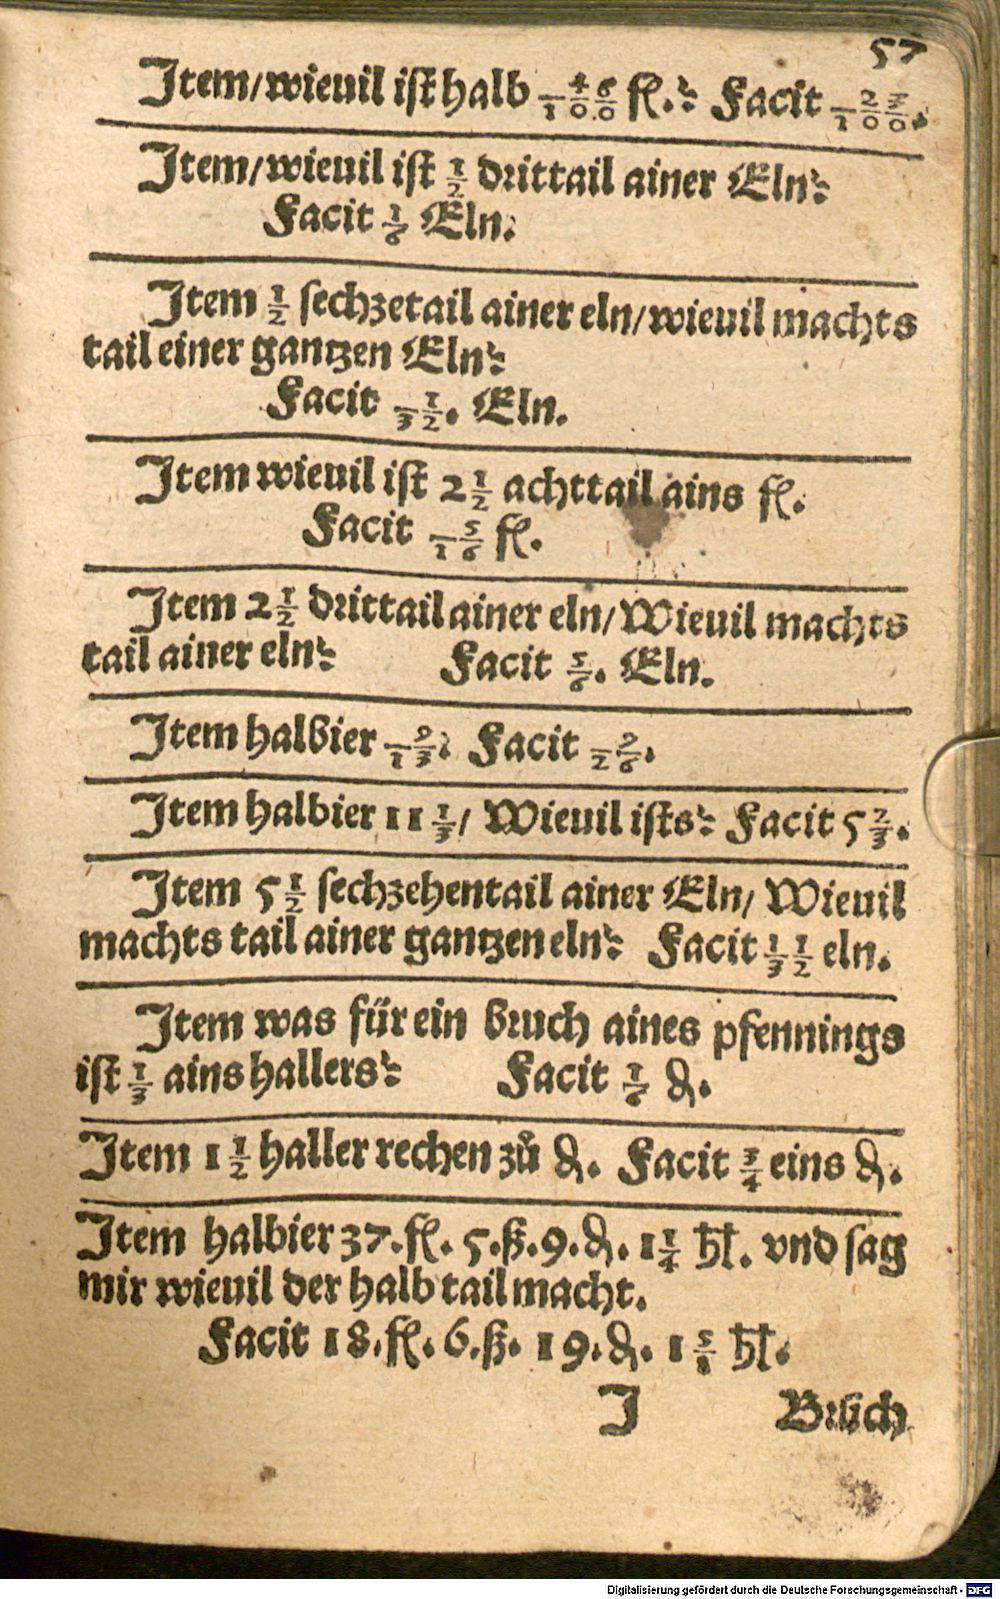 57
Item/wieuil ist halb 46/100 fl.: Facit 23/100.
Item/wieuil ist 1/2 drittail ainer Eln:
Facit 1/6 Eln.
Item 1/2 sechzetail ainer eln/wieuil machts
tail einer gantzen Eln:
Facit 1/32. Eln.
Item wieuil ist 2 1/2 achttail ains fl.
Facit 5/16 fl.
Item 2 1/2 drittail ainer eln/Wieuil machts
tail ainer eln: Facit 5/6. Eln.
Item halbier 9/13: Facit 9/26.
Item halbier 11 1/3/ Wieuil ists: Facit 5 2/3.
Item 5 1/2 sechzehentail ainer Eln/ Wieuil
machts tail ainer gantzen eln: Facit 11/32 eln.
Item was für ein bruch aines pfennings
ist 1/3 ains hallers: Facit 1/6 ₰.
Item 1 1/2 haller rechen zů ₰. Facit 3/4 eins ₰.
Item halbier 37.fl. 5.ß.9.₰. 1 1/4 hl. vnd sag
mir wieuil der halb tail macht.
Facit 18.fl. 6.ß. 19.₰. 1 5/8 hl.
J Bruch
Digitalisierung gefördert durch die Deutsche Forschungsgemeinschaft - DFG